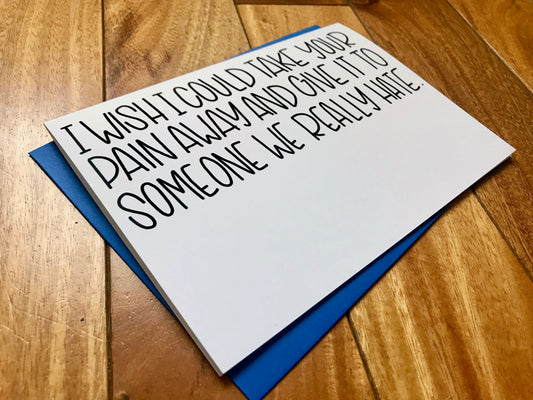 I WISH I COULD TAKE YOUR
PAIN AWAY AND GIVE IT TO
SOMEONE WE REALLY HATE.